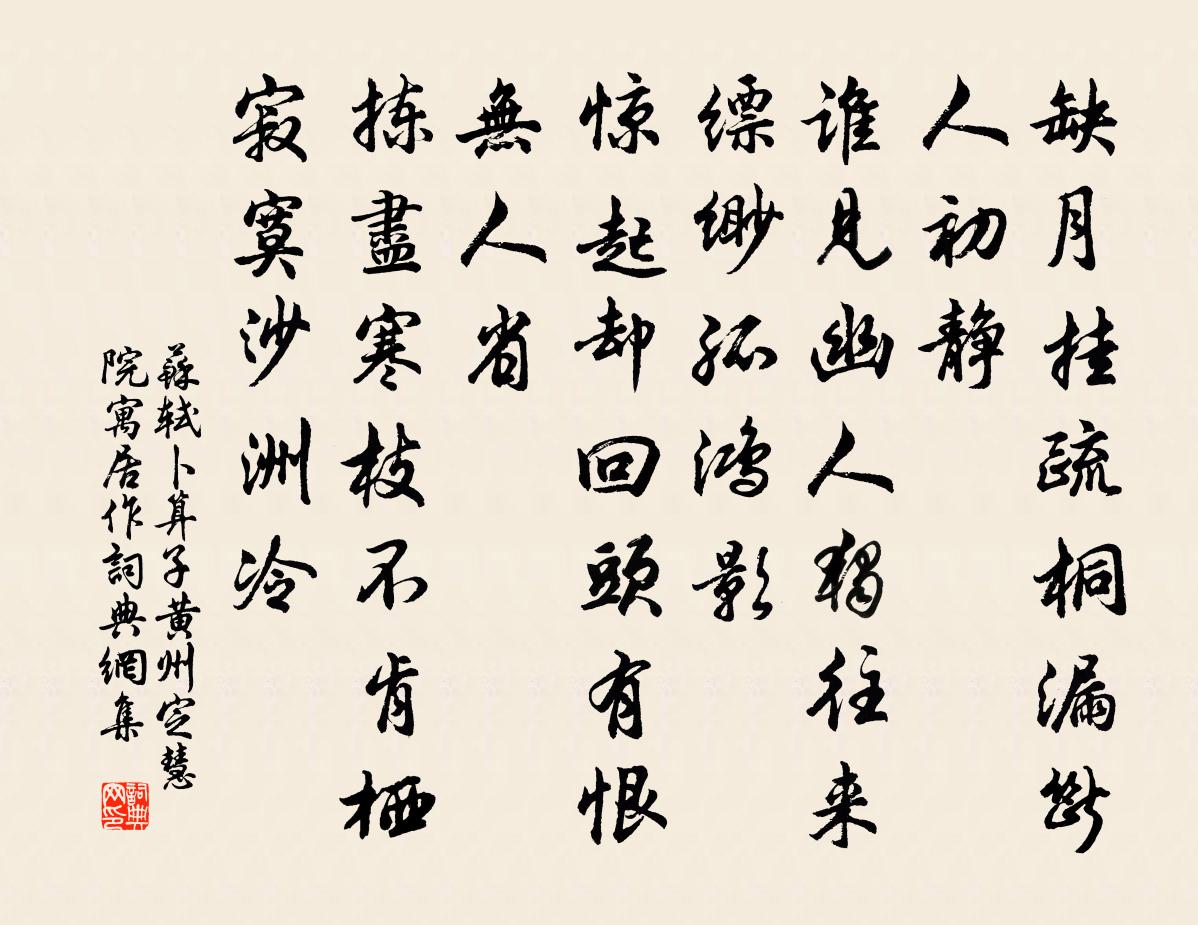 缺月挂疏桐漏斷
人初静
谁見幽人獨往来
缥缈孤鸿影
惊起却回頭有恨
無人省
拣盡寒枝不肯栖
寂寞沙洲冷
蘇轼卜算子黄州定慧
院寓居作詞典網集
詞典
网印